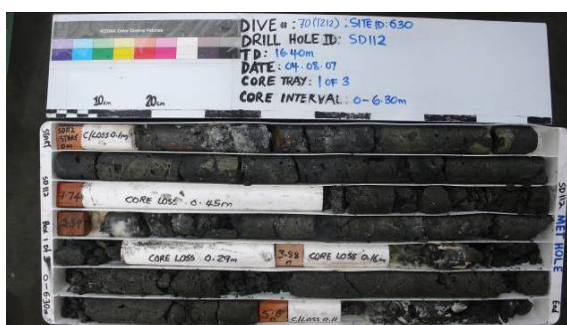 KODAK Color Control Patches
10cm 20cm
DIVE #: 70(T212) ; SITE ID: 630
DRILL HOLE ID: SD112
TD: 16.40m
DATE: 04.08.07
CORE TRAY: 1 OF 3
CORE INTERVAL: 0-6.30m
Start
SD112
START
0m
C/LOSS 0.1m
SD112
1.74
CORE LOSS 0.45m
Box 1 of 3
2.59
CORE LOSS 0.29m
3.88
CORE LOSS 0.16m
0-6.30m
C/LOSS 0.11
SD112
MET HOLE
End